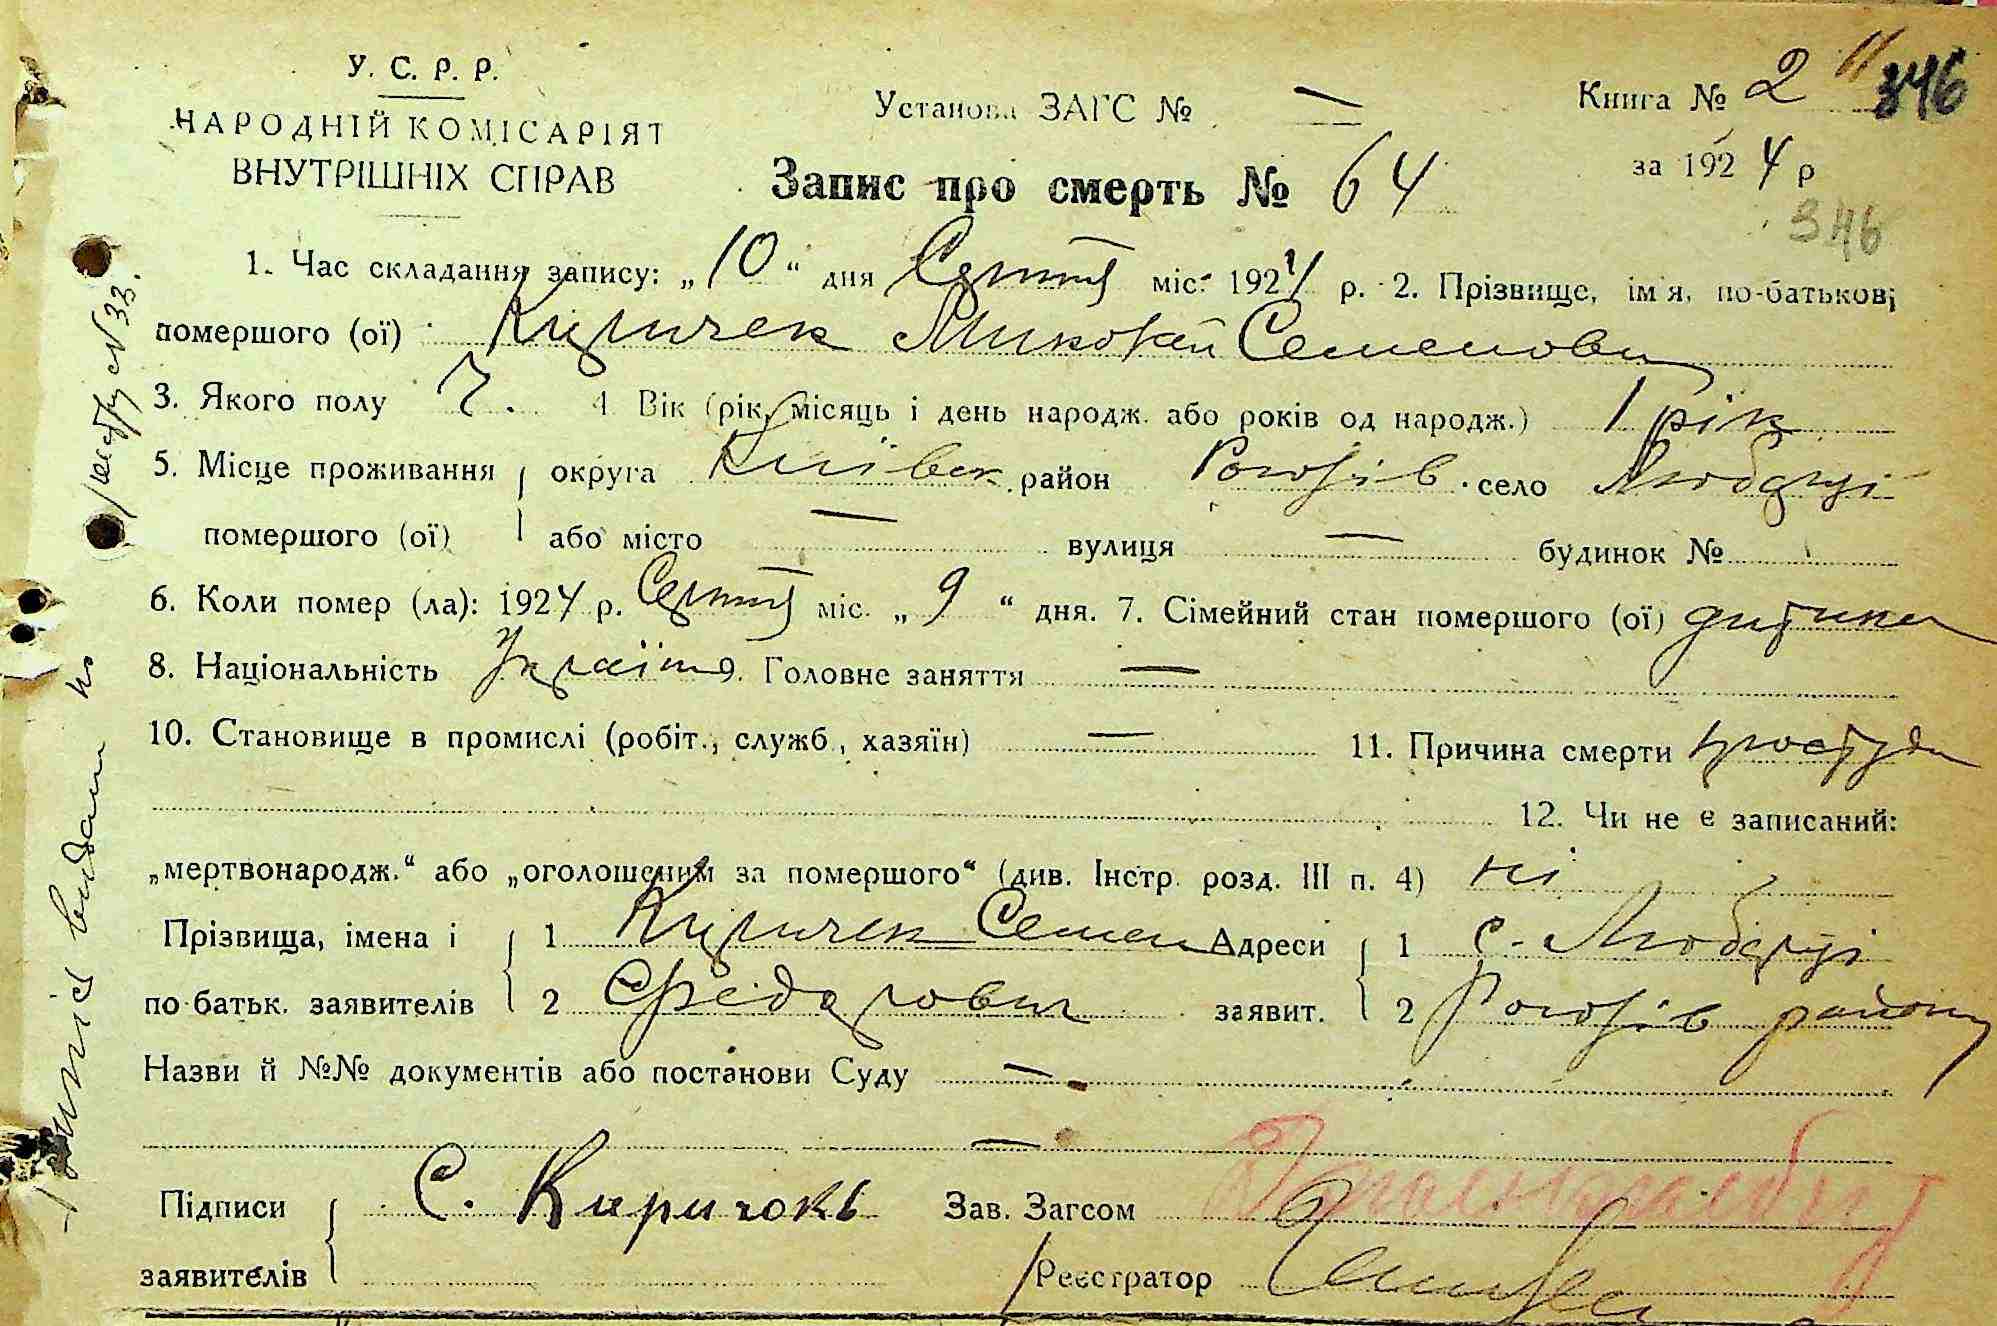 У. С. Р. Р.
НАРОДНІЙ КОМІСАРІЯТ
ВНУТРІШНІХ СПРАВ
Установа ЗАГС № —
Книга № 2
346
за 1924 р
346
Запис про смерть № 64
1. Час складання запису: „10“ дня Серпня міс. 1924 р. 2. Прізвище, імя, по-батькові
помершого (ої) Киричек Миколай Семенович
3. Якого полу Ч. 4 Вік (рік, місяць і день народж. або років од народж.) 1 рік
5. Місце проживання помершого (ої) округа Київськ район Рогозів село Любарці
або місто — вулиця — будинок №
6. Коли помер (ла): 1924 р. Серпня міс. „9“ дня. 7. Сімейний стан помершого (ої) дитина
8. Національність Україн 9. Головне заняття —
10. Становище в промислі (робіт., служб., хазяїн) — 11. Причина смерти простуда
12. Чи не є записаний:
„мертвонародж.“ або „оголошеним за помершого“ (див. Інстр. розд. III п. 4) ні
Прізвища, імена і по батьк. заявителів 1 Киричек Семен
2 Федорович
Адреси заявит. 1 с. Любарці
2 Рогозів району
Назви й №№ документів або постанови Суду —
—
Підписи заявителів С. Киричокъ
Зав. Загсом
Реєстратор